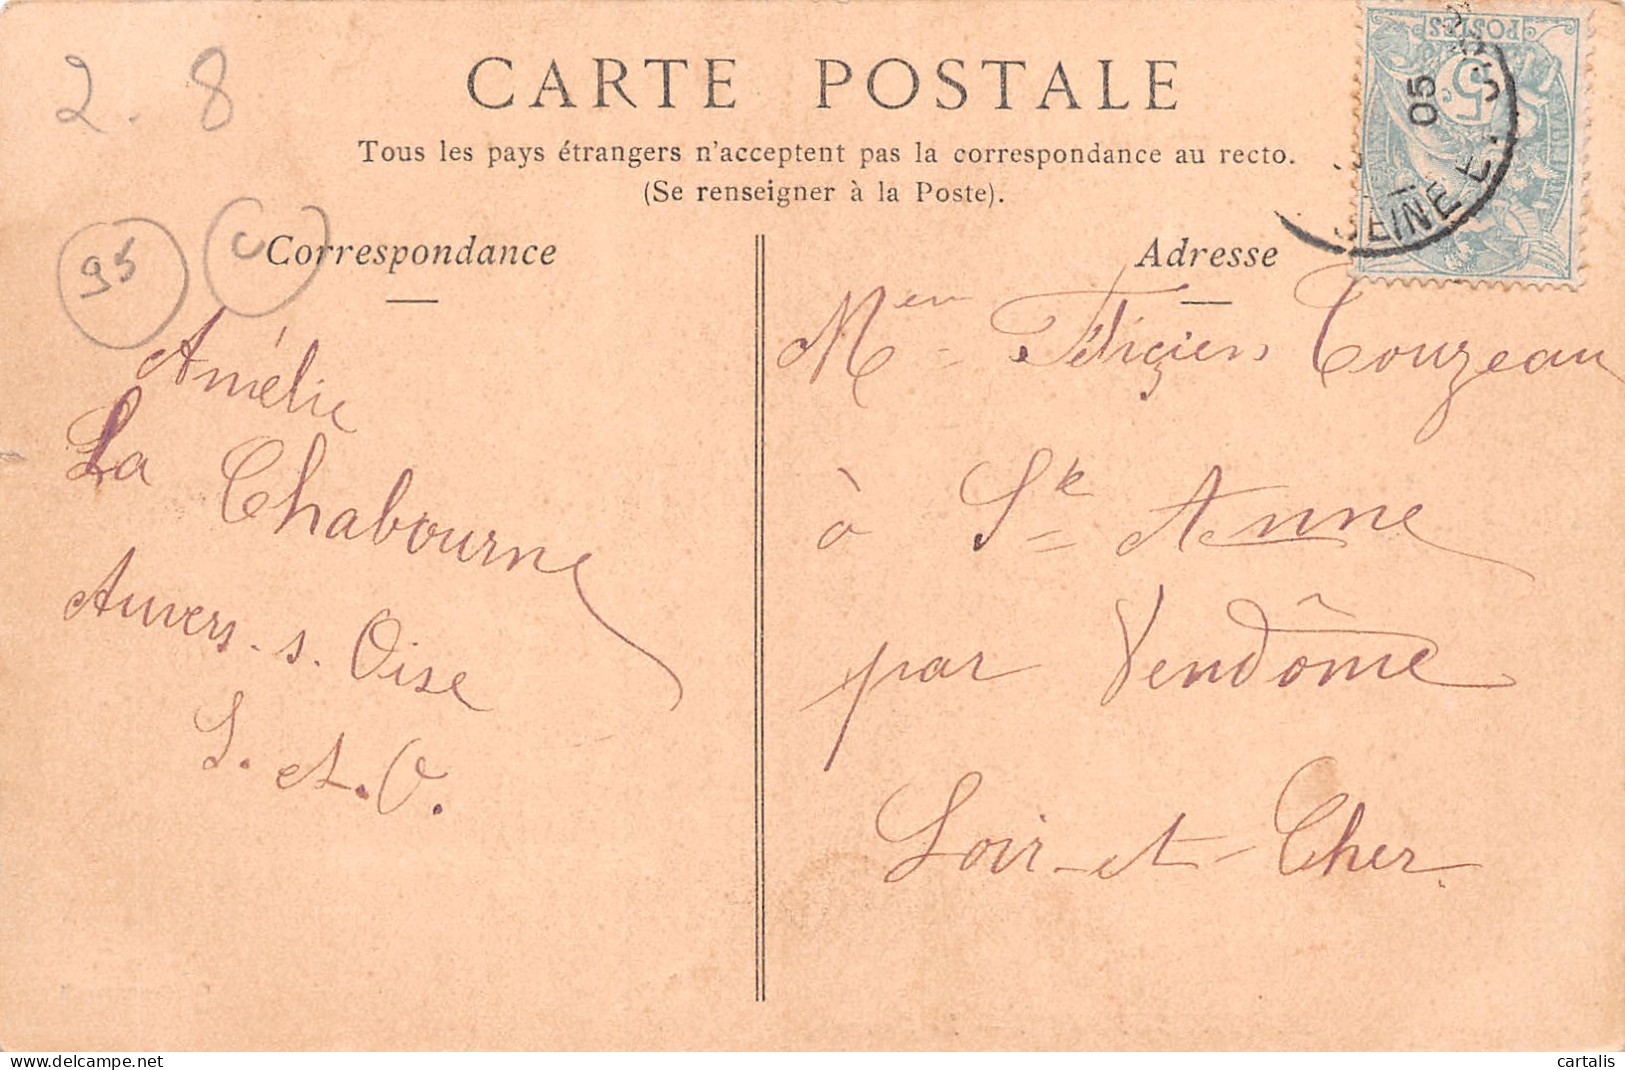 2. 8
CARTE POSTALE
Tous les pays étrangers n'acceptent pas la correspondance au recto.
(Se renseigner à la Poste).
95
C
Correspondance
Amélie
La Chabourne
Auvers. s. Oise
S. et. O.
Adresse
POSTES
5
05
SEINE
Touzeau
à Ste Anne
par Vendôme
Loir-et-Cher
delcampe.net
cartalis